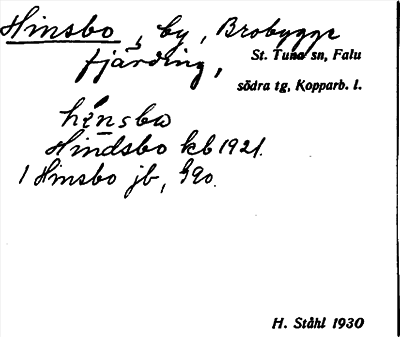 Hinsbo, by, Brobygge
fjärding,
St. Tuna sn, Falu
södra tg, Kopparb. l.
Hindsbo kb 1921.
1 Hinsbo jb, 590.
H. Ståhl 1930